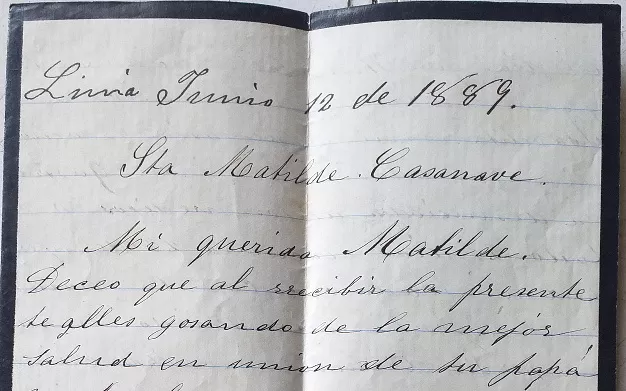 Lima Junio 12 de 1889.
Sta Matilde Casanave.
Mi querida Matilde.
Deceo que al rrecibir la presente
te alles gosando de la mejór
salud en union de tu papá